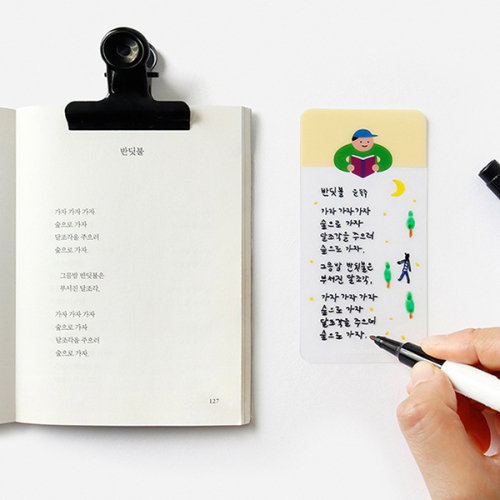 반딧불
가자 가자 가자
숲으로 가자
달조각을 주으러
숲으로 가자.
그믐밤 반딧불은
부서진 달조각,
가자 가자 가자
숲으로 가자
달조각을 주으러
숲으로 가자.
127
반딧불 윤동주
가자 가자 가자
숲으로 가자
달조각을 주으러
숲으로 가자.
그믐밤 반딧불은
부서진 달조각,
가자 가자 가자
숲으로 가자
달조각을 주으러
숲으로 가자.